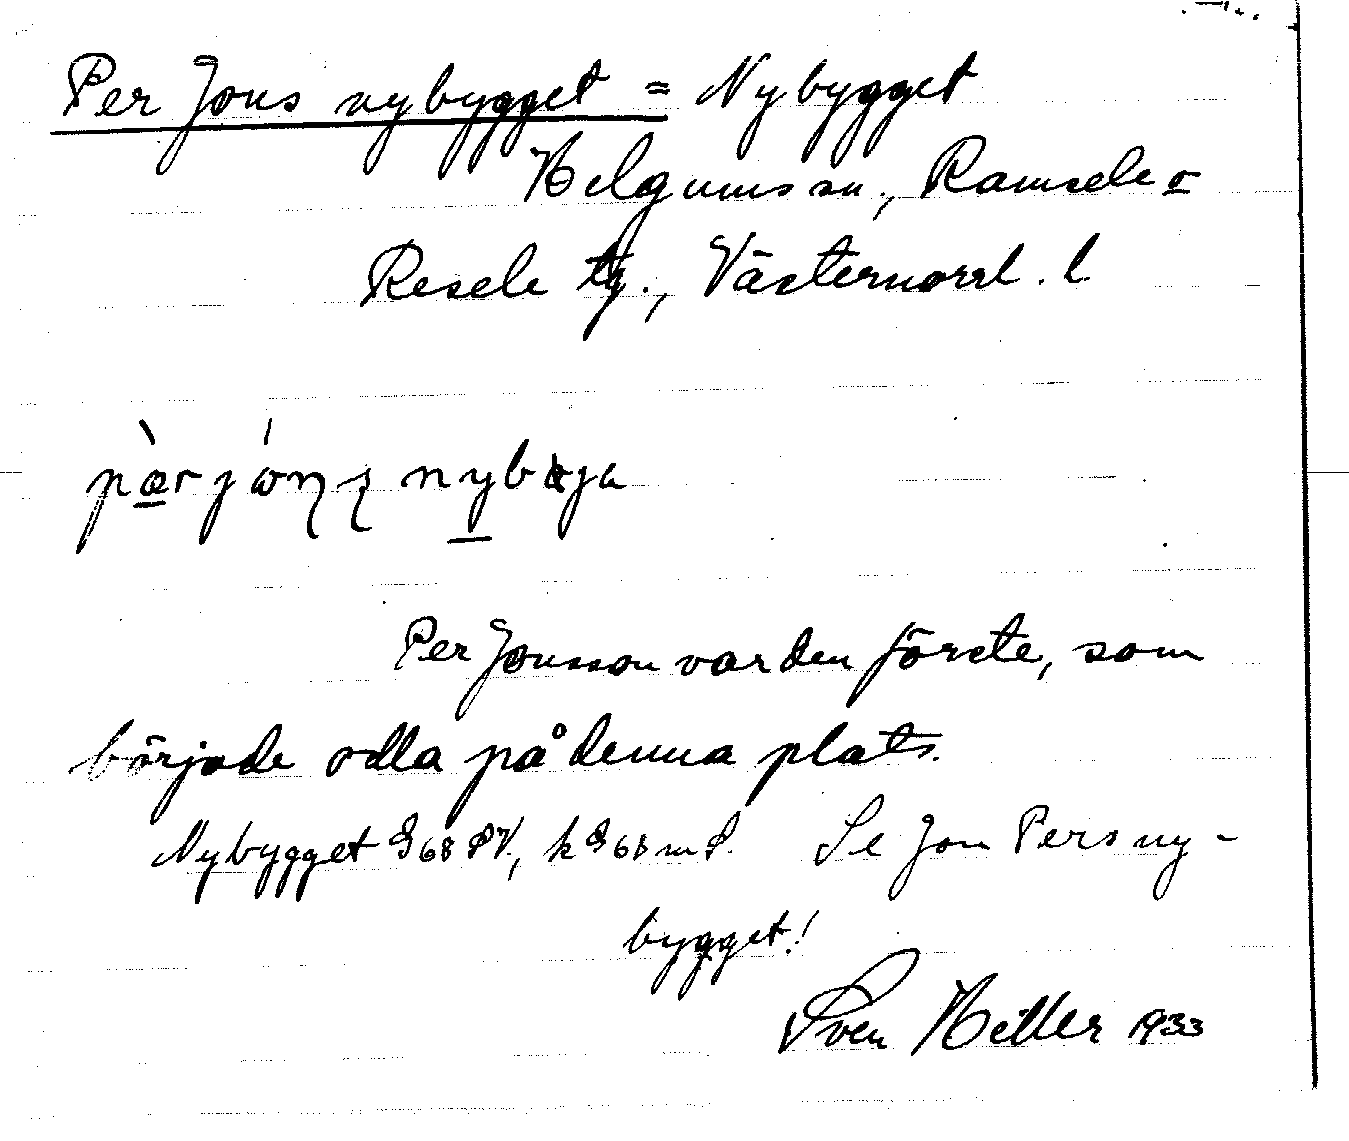 Per Jons nybygget = Nybygget
Helgums sn., Ramsele o
Resele tg., Västernorrl. l
Per Jonsson var den förste, som
började odla på denna plats.
Nybygget G 68 SV, k G 68 m S. Se Jon Pers ny-
bygget!
Sven Hiller 1933